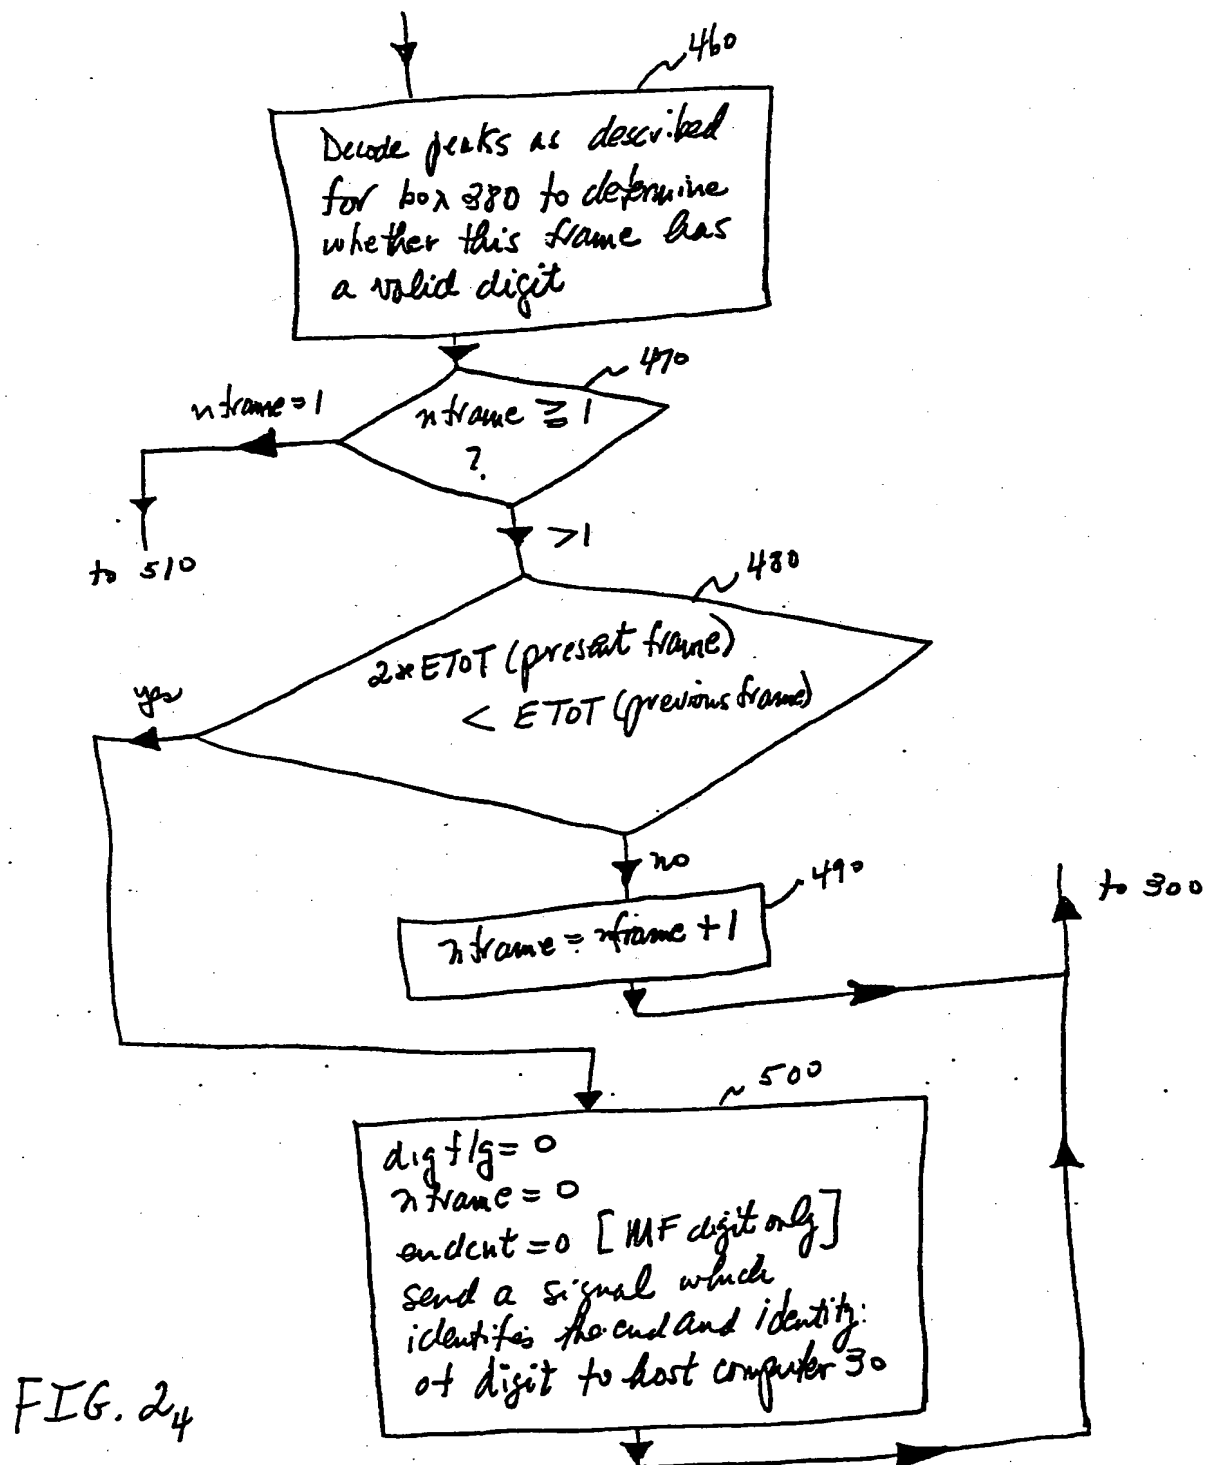 460
Decode peaks as described
for box 380 to determine
whether this frame has
a valid digit
470
nframe = 1
nframe ≧ 1
?
>1
to 510
480
2*ETOT (present frame)
< ETOT (previous frame)
yes
no
490
to 300
nframe = nframe + 1
500
digflg = 0
nframe = 0
endcnt = 0 [MF digit only]
send a signal which
identifies the end and identity
of digit to host computer 30
FIG. 2₄